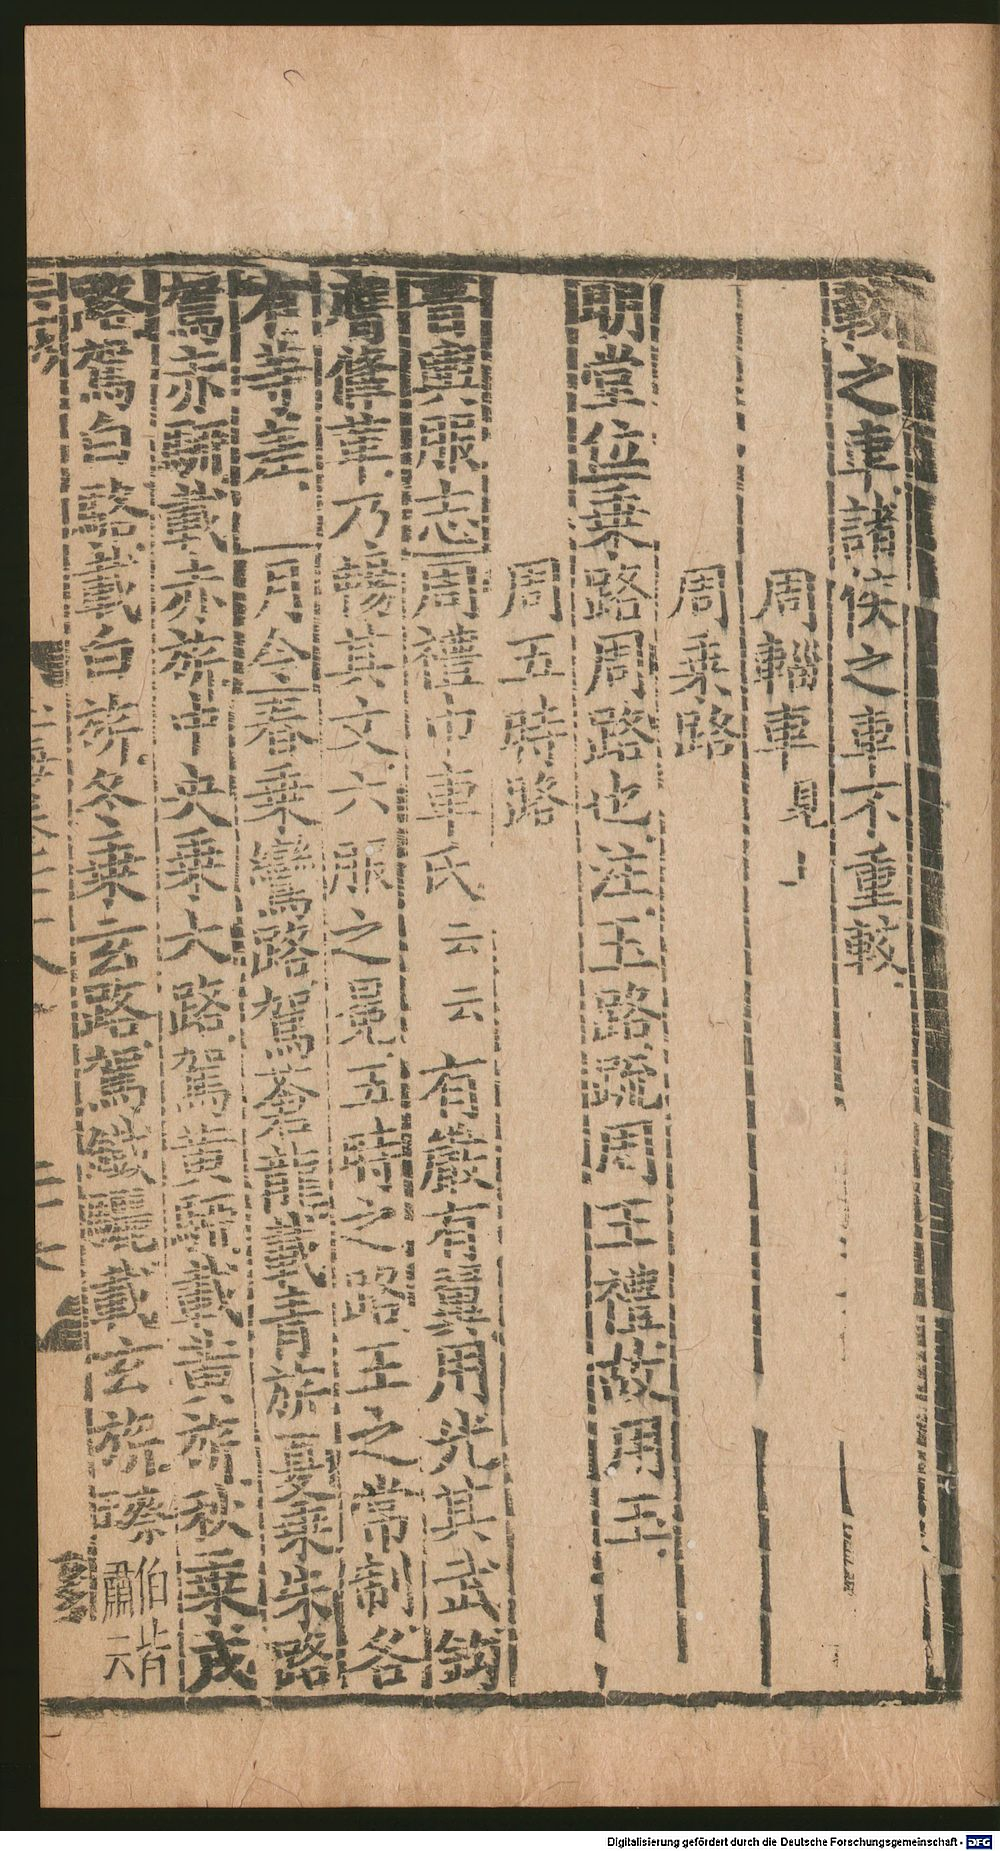 之車諸侯之車不重較
周輜車見上
周乘路
明堂位乘路周路也注玉路疏周王禮故用玉
周五時路
晉輿服志周禮巾車氏云云有嚴有翼用光其武鉤
膺鞗革乃暢其文六服之冕五時之路王之常制各
有等差 月令春乘鸞路駕蒼龍載青旂夏乘朱路
駕赤騮載赤旂中央乘大路駕黃騮載黃旂秋乘戎
路駕白駱載白旂冬乘玄路駕鐵驪載玄旂
Digitalisierung gefördert durch die Deutsche Forschungsgemeinschaft - DFG